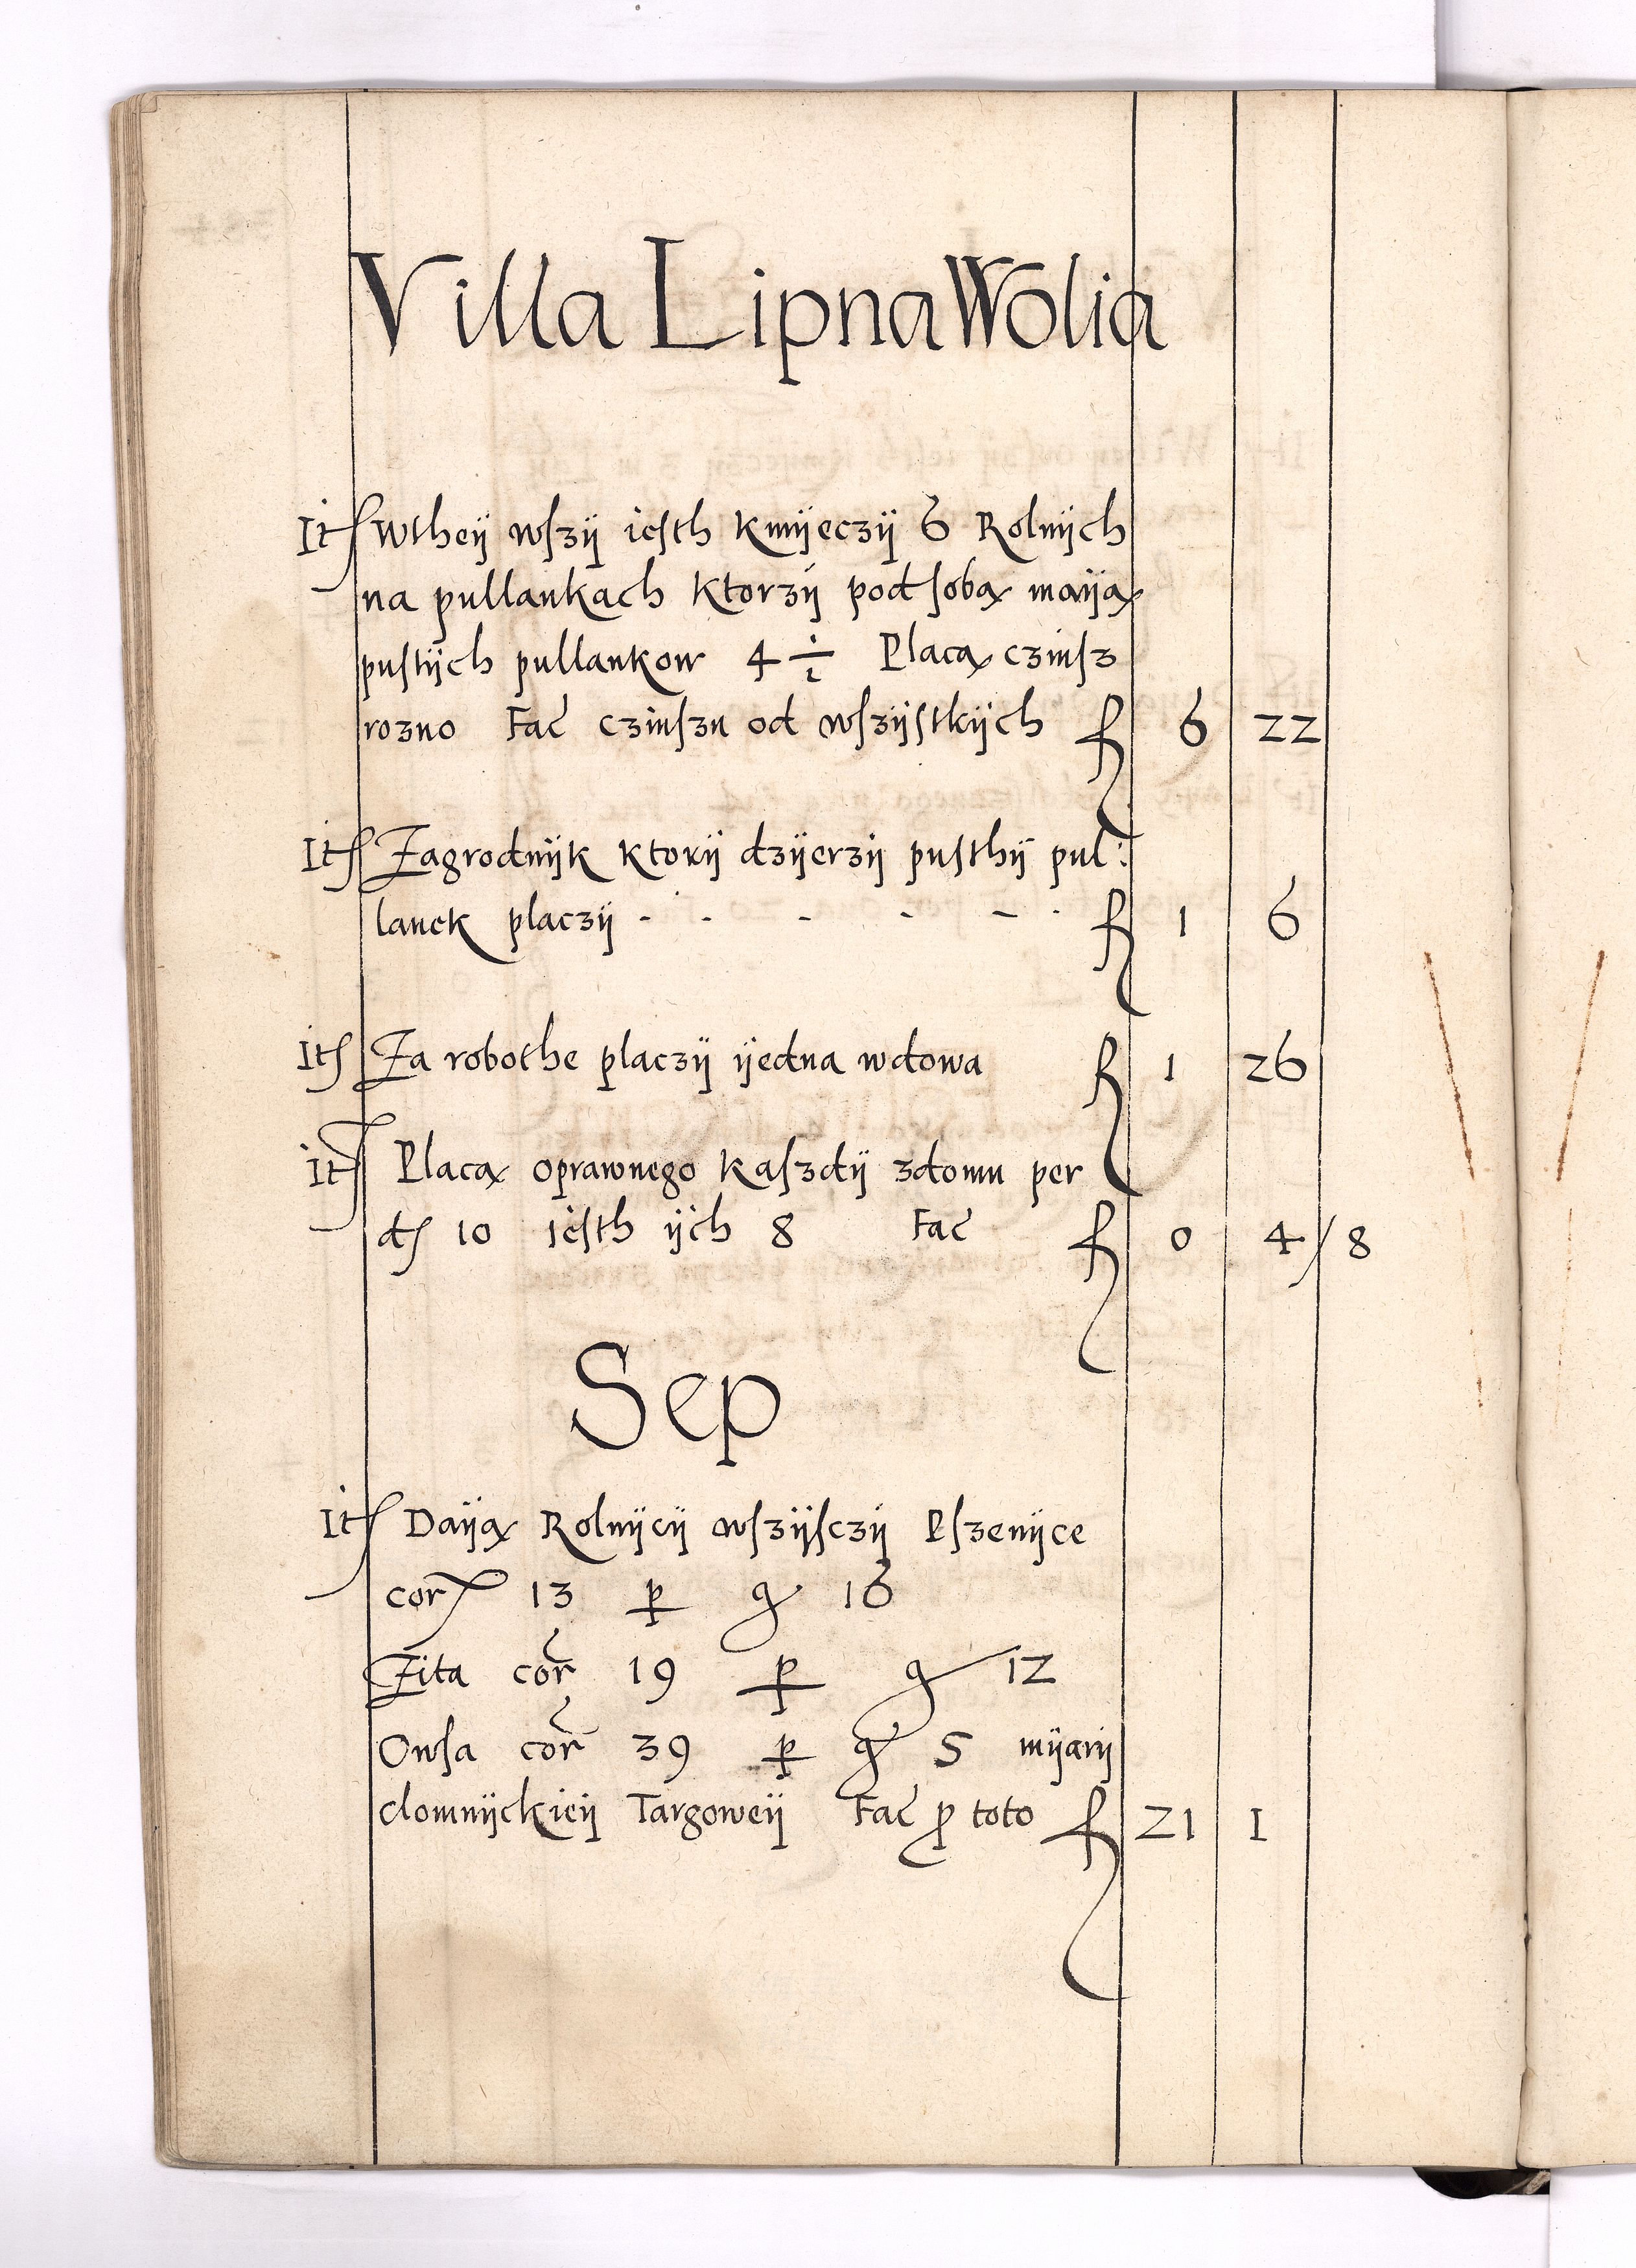 Villa Lipna Wolia
It Wtheÿ wszÿ iesth Kmÿeczÿ 6 Rolnÿch
na pullankach Ktorzÿ pod sobą maÿą
pustÿch pullankow 4 1/2 Placą czinsz
rozno Fac czinszu od wszÿstkÿch f 6 22
It Zagrodnÿk Ktorÿ dzÿerzÿ pusthÿ pul:
lanek placzÿ - - - - - - f 1 6
It Za robothe placzÿ ÿedna wdowa f 1 26
It Placą oprawnego Kaszdÿ zdomu per
d 10 iesth ÿch 8 Fac f 0 4/8
Sep
It Daÿą Rolnÿcÿ wszÿsczÿ Pszenÿce
cor 13 p g 16
Zita cor 19 p g 12
Owsa cor 39 p g 5 mÿarÿ
clomnÿckieÿ Targoweÿ Fac p toto f 21 1